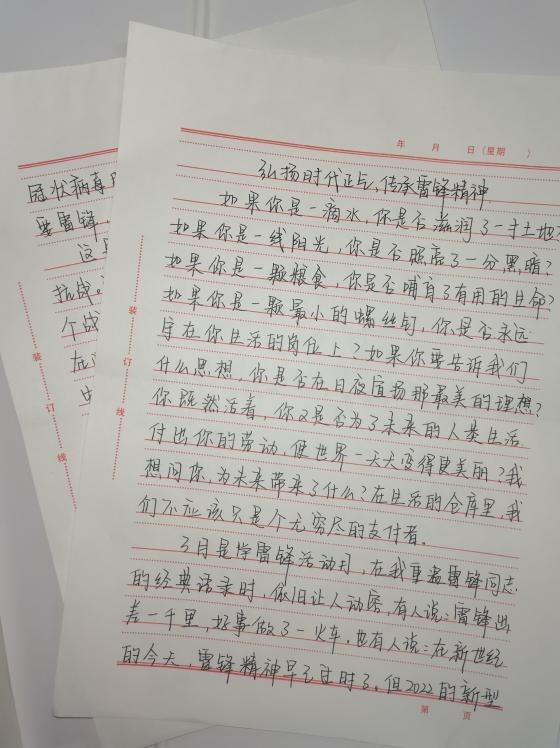 年 月 日（星期 ）
弘扬时代正气，传承雷锋精神
如果你是一滴水，你是否滋润了一寸土地？
如果你是一线阳光，你是否照亮了一分黑暗？
如果你是一颗粮食，你是否哺育了有用的生命？
如果你是一颗最小的螺丝钉，你是否永远
守在你生活的岗位上？如果你要告诉我们
什么思想，你是否在日夜宣扬那最美的理想？
你既然活着，你又是否为了未来的人类生活
付出你的劳动，使世界一天天变得更美丽？我
想问你，为未来带来了什么？在生活的仓库里，我
们不应该只是个无穷尽的支付者。
3月是学雷锋活动月，在我重温雷锋同志
的经典语录时，依旧让人动容，有人说：雷锋出
差一千里，好事做了一火车，也有人说：在新世纪
的今天，雷锋精神早已过时了。但2022的新型
第 页
装
订
线
冠状病毒
要雷锋，
这
抗战。
个战
在
装
订
线